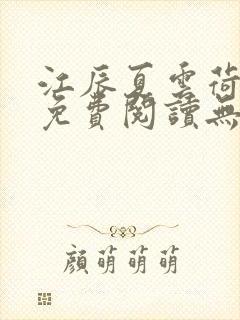 江辰夏雲荷
免費閱讀無
顏萌萌萌